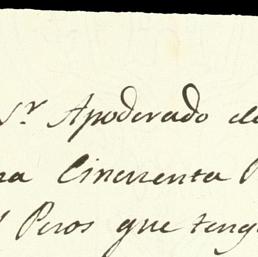 Sr. Apoderado de
na Cincuenta P
Pesos que teng